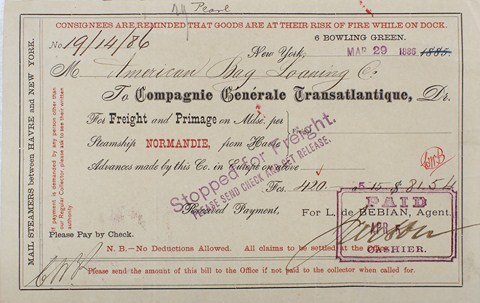 Pearl
CONSIGNEES ARE REMINDED THAT GOODS ARE AT THEIR RISK OF FIRE WHILE ON DOCK.
No 19/14/86
6 BOWLING GREEN.
New York, MAR 29 1886 1885.
M American Bag Loaning Co
To Compagnie Générale Transatlantique, Dr.
For Freight and Primage on Mdse. per
Steamship NORMANDIE, from Havre
Advances made by this Co. in Europe on above
Fcs. 420 5.15 $ 81.54
Stopped for Freight.
PLEASE SEND CHECK AND GET RELEASE.
Received Payment,
For L. de BÉBIAN, Agent.
PAID
APR
CASHIER.
Please Pay by Check.
N. B.—No Deductions Allowed. All claims to be settled at the
Please send the amount of this bill to the Office if not paid to the collector when called for.
MAIL STEAMERS between HAVRE and NEW YORK.
If payment is demanded by any person other than our Regular Collector, please ask to see their written authority